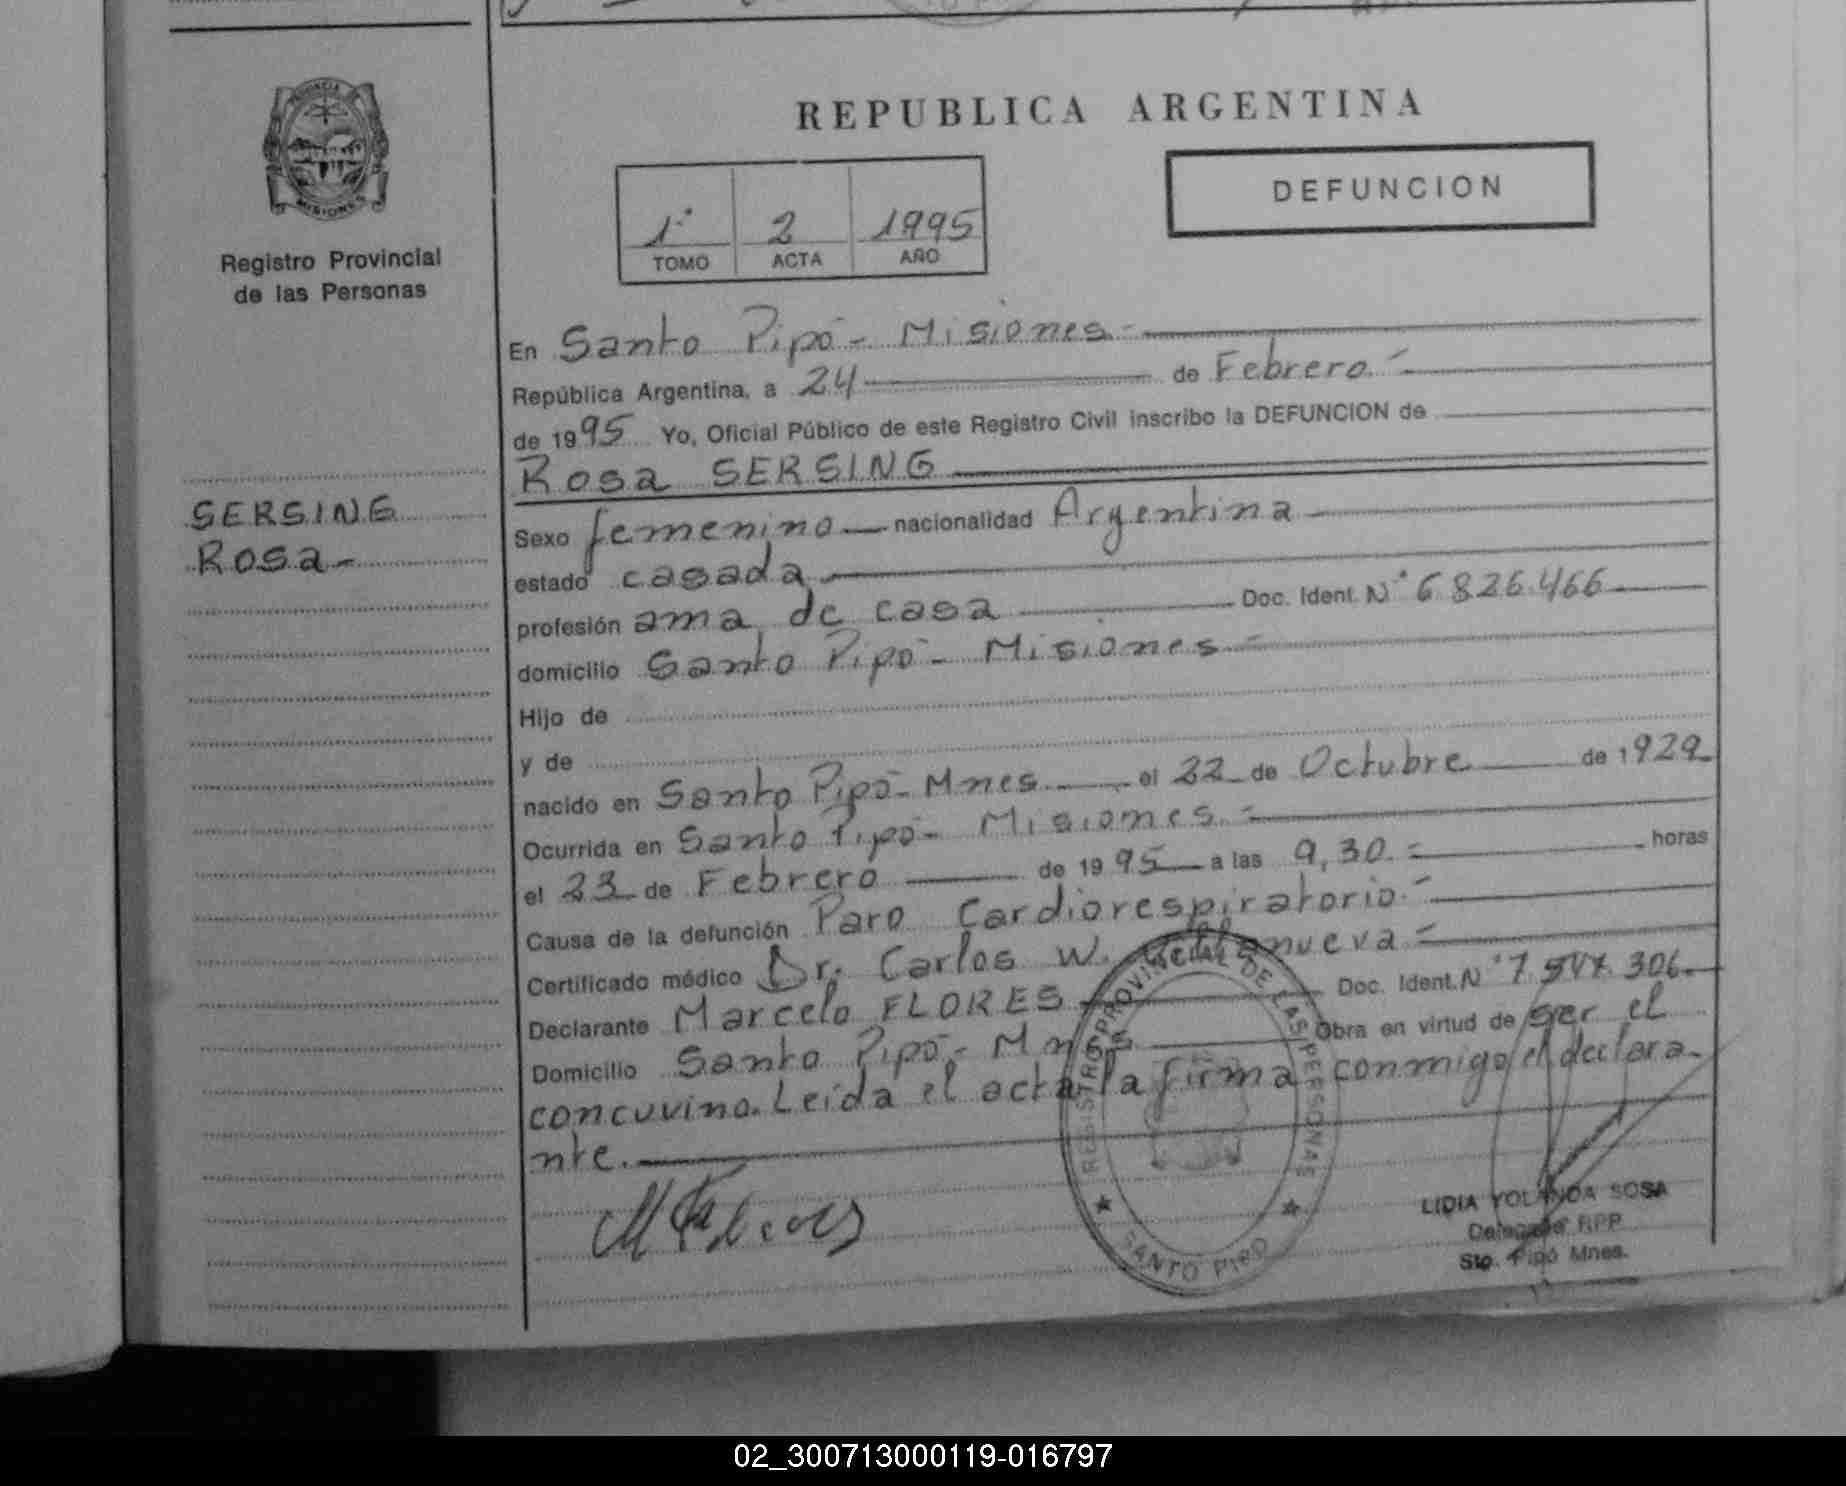 PROVINCIA DE
MISIONES
Registro Provincial
de las Personas
SERSING
Rosa -
REPUBLICA ARGENTINA
1º 2 1995
TOMO ACTA AÑO
DEFUNCION
En Santo Pipó - Misiones.-
República Argentina, a 24 de Febrero.-
de 1995 Yo, Oficial Público de este Registro Civil inscribo la DEFUNCION de
Rosa SERSING
Sexo femenino nacionalidad Argentina
estado casada
profesión ama de casa Doc. Ident. Nº 6.826.466
domicilio Santo Pipó - Misiones.-
Hijo de
y de
nacido en Santo Pipó - Mnes. el 22 de Octubre de 1929
Ocurrida en Santo Pipó - Misiones.-
el 23 de Febrero de 1995 a las 9,30.- horas
Causa de la defunción Paro Cardiorespiratorio.-
Certificado médico Dr. Carlos W. Villanueva.-
Declarante Marcelo FLORES Doc. Ident. Nº 7.547.306.
Domicilio Santo Pipó - Mnes Obra en virtud de ser el
concuvino. Leida el acta la firma conmigo el declara-
nte.
M Flores
REGISTRO PROVINCIAL DE LAS PERSONAS
SANTO PIPO
LIDIA YOLANDA SOSA
Delegada RPP
Sto. Pipó Mnes.
02_300713000119-016797